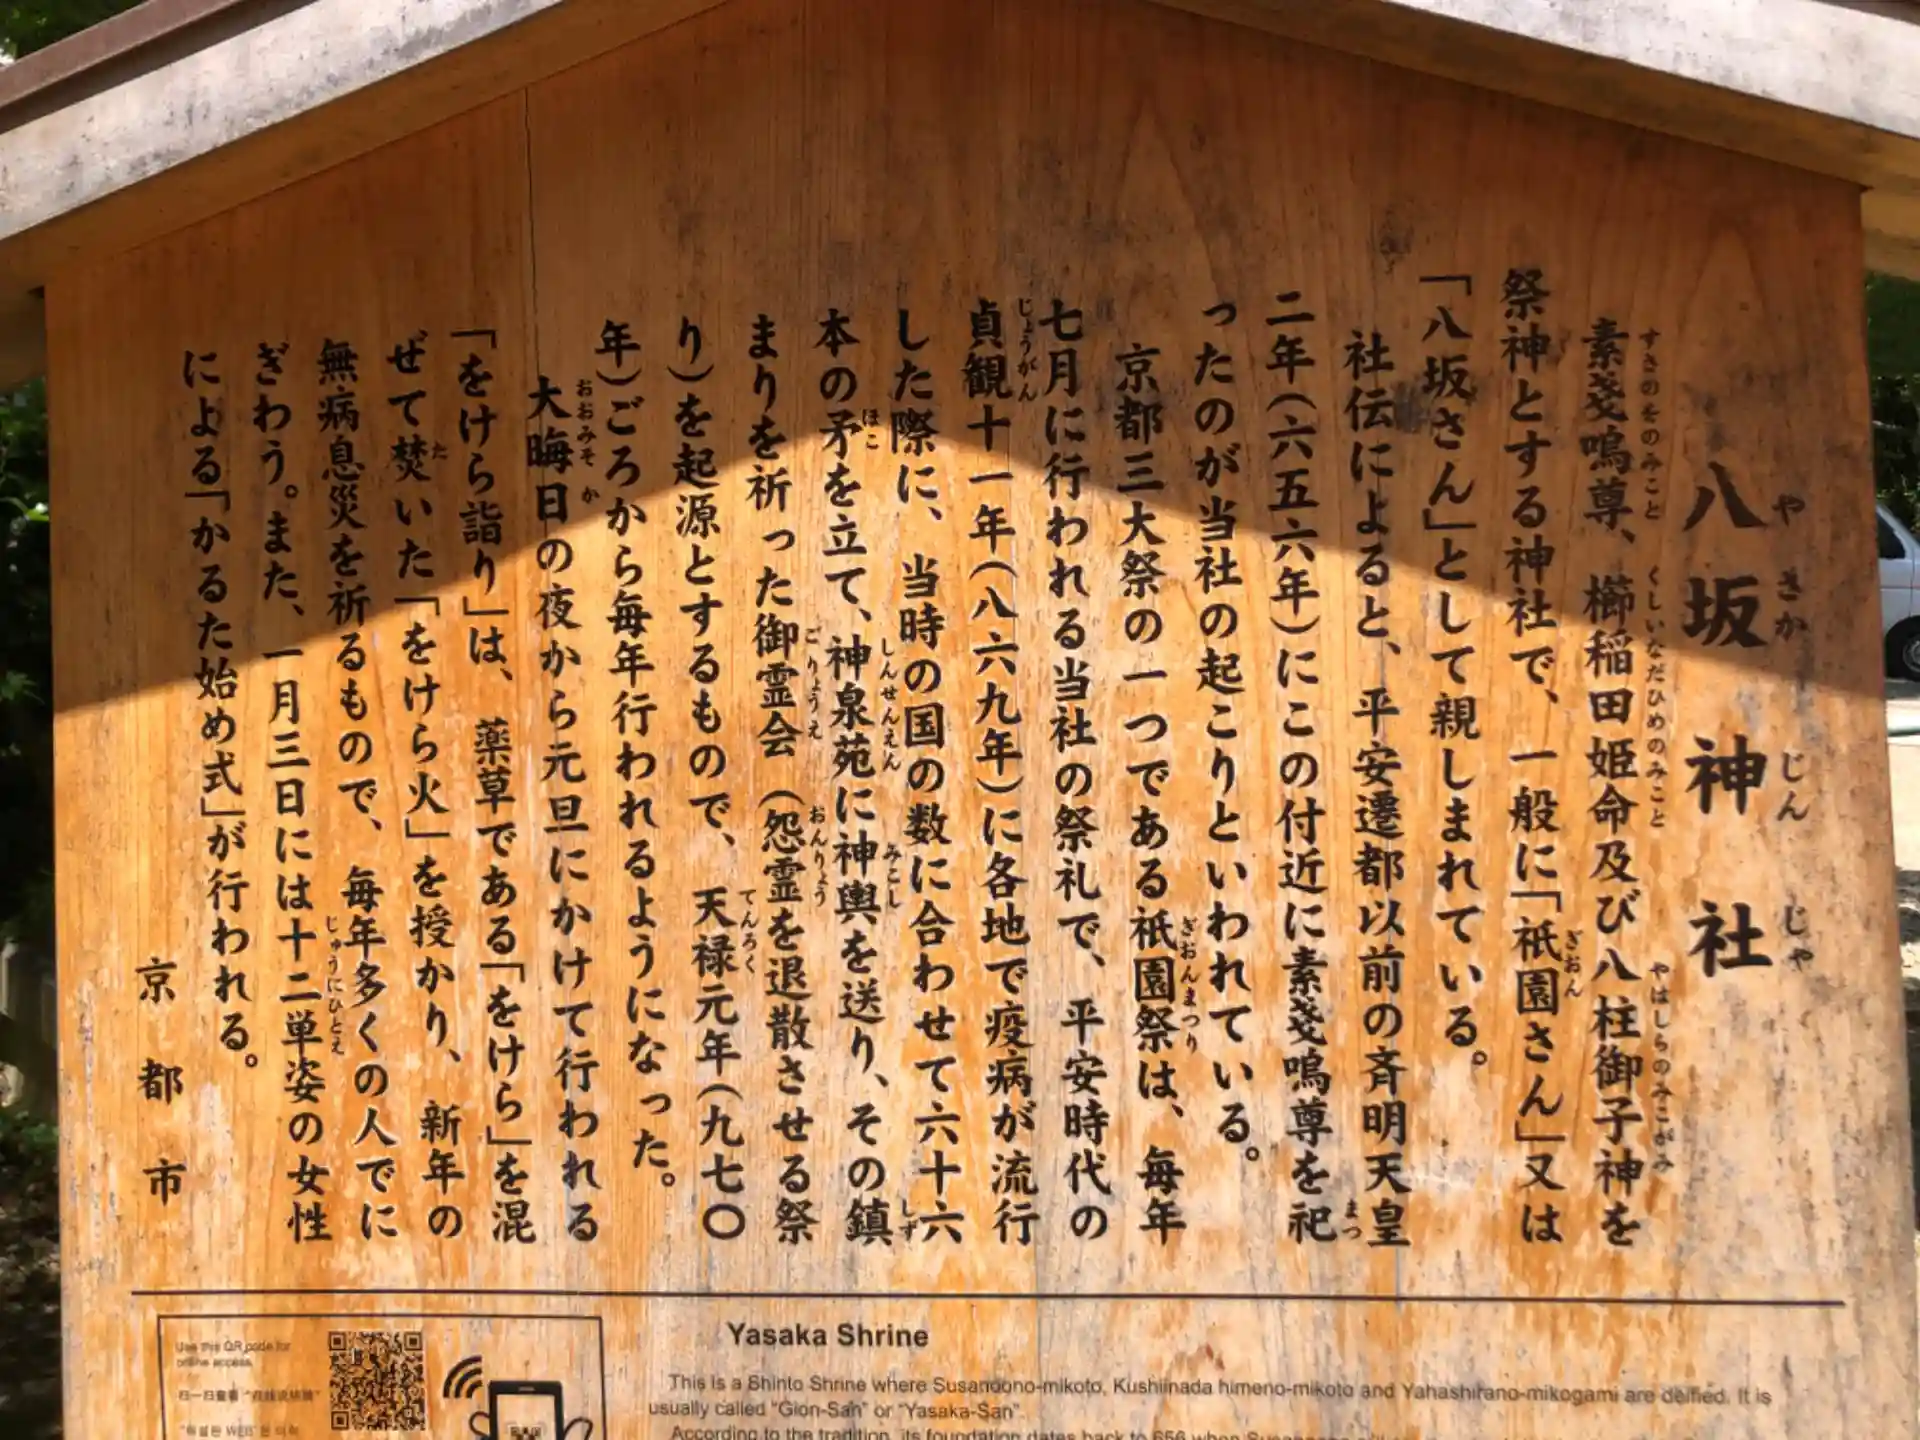 八坂神社
やさかじんじゃ
素戔嗚尊、櫛稲田姫命及び八柱御子神を
すさのをのみこと くしいなだひめのみこと やはしらのみこがみ
祭神とする神社で、一般に「祇園さん」又は
ぎおん
「八坂さん」として親しまれている。
社伝によると、平安遷都以前の斉明天皇
二年（六五六年）にこの付近に素戔嗚尊を祀
まつ
ったのが当社の起こりといわれている。
京都三大祭の一つである祇園祭は、毎年
ぎおんまつり
七月に行われる当社の祭礼で、平安時代の
貞観十一年（八六九年）に各地で疫病が流行
じょうがん
した際に、当時の国の数に合わせて六十六
本の矛を立て、神泉苑に神輿を送り、その鎮
ほこ しんせんえん みこし しず
まりを祈った御霊会（怨霊を退散させる祭
ごりょうえ おんりょう
り）を起源とするもので、天禄元年（九七〇
てんろく
年）ごろから毎年行われるようになった。
大晦日の夜から元旦にかけて行われる
おおみそか
「をけら詣り」は、薬草である「をけら」を混
ぜて焚いた「をけら火」を授かり、新年の
た
無病息災を祈るもので、毎年多くの人でに
ぎわう。また、一月三日には十二単姿の女性
じゅうにひとえ
による「かるた始め式」が行われる。
京都市
Use this QR code for
online access.
Yasaka Shrine
This is a Shinto Shrine where Susanoono-mikoto, Kushiinada himeno-mikoto and Yahashirano-mikogami are deified. It is
usually called "Gion-San" or "Yasaka-San".
According to the tradition, its foundation dates back to 656 when